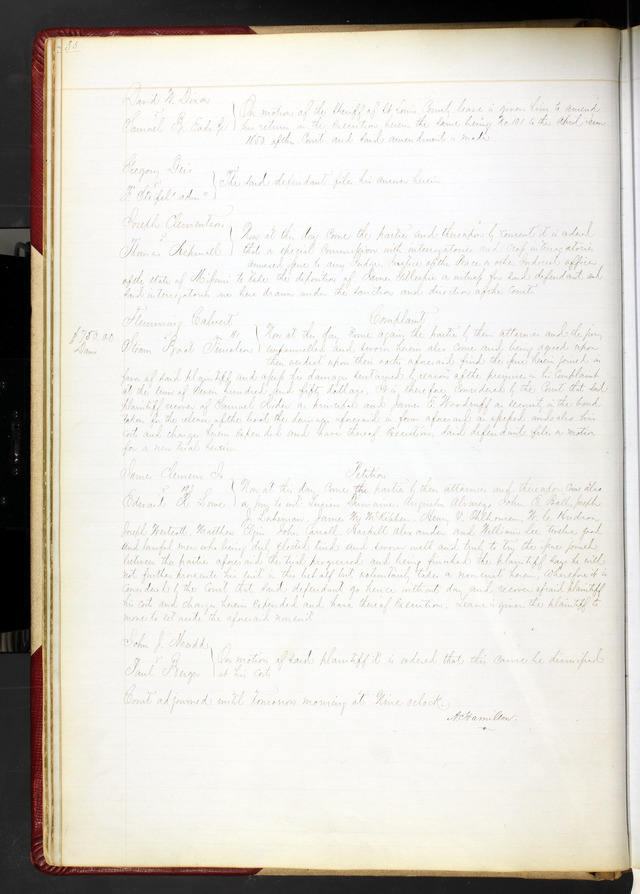 David W. Dixon
vs
Samuel
On motion of the Sheriff of St Louis County leave is given him to amend
his return on the execution herein the same being No 101 to the April Term
1850 of this Court and said amendment is made
Gregory
vs
adm
The said defendant files his answer herein
Joseph Clementson
vs
Thomas
Now at this day come the parties and thereupon by consent it is ordered
that a special Commission with interrogatories and cross interrogatories
annexed issue to any Judge, Justice of the Peace or other Judicial officer
of the State of Missouri to take the deposition of Gillespie a witness for said defendant and
said interrogatories are here drawn under the sanction and direction of the Court
Flemming Calvert
vs
Steam Boat Timoleon
Complaint
$750.00
Dam
Now at this day come again the parties by their attorneys and the jury
empannelled and sworn herein also come and being agreed upon
their verdict upon their oaths aforesaid find the issue herein joined in
favor of said plaintiff and assess his damages sustained by reason of the premises in his complaint
at the sum of Seven hundred and fifty dollars, It is therefore Considered by the Court that said
plaintiff recover of Samuel as principal and James as security in the bond
taken for the release of the boat the damages aforesaid in form aforesaid assessed and also his
costs and charges herein expended and have thereof Execution. Said defendant files a motion
for a new trial herein
James Clemens Jr
vs
Edward
Petition
Now at this day come the parties by their attorneys and thereupon come also
a jury to wit Eugene Augustus Alvarez, John C. Ball, Joseph
James Henry W. Hudson
Joseph Westcott, Matthew John Carroll Haskell Alexander and William Lee twelve good
and lawful men who being duly elected tried and sworn well and truly to try the issue joined
between the parties aforesaid the trial progressed and being finished the plaintiff says he will
not further prosecute his suit in this behalf but voluntarily takes a nonsuit herein, Therefore it is
Considered by the Court that said defendant go hence without day and recover of said plaintiff
his costs and charges herein expended and have thereof Execution. Leave is given the plaintiff to
move to set aside the aforesaid nonsuit
John J.
vs
Paul
On motion of said plaintiff it is ordered that this cause be dismissed
at his costs
Court adjourned until tomorrow morning at Nine oclock.
A Hamilton